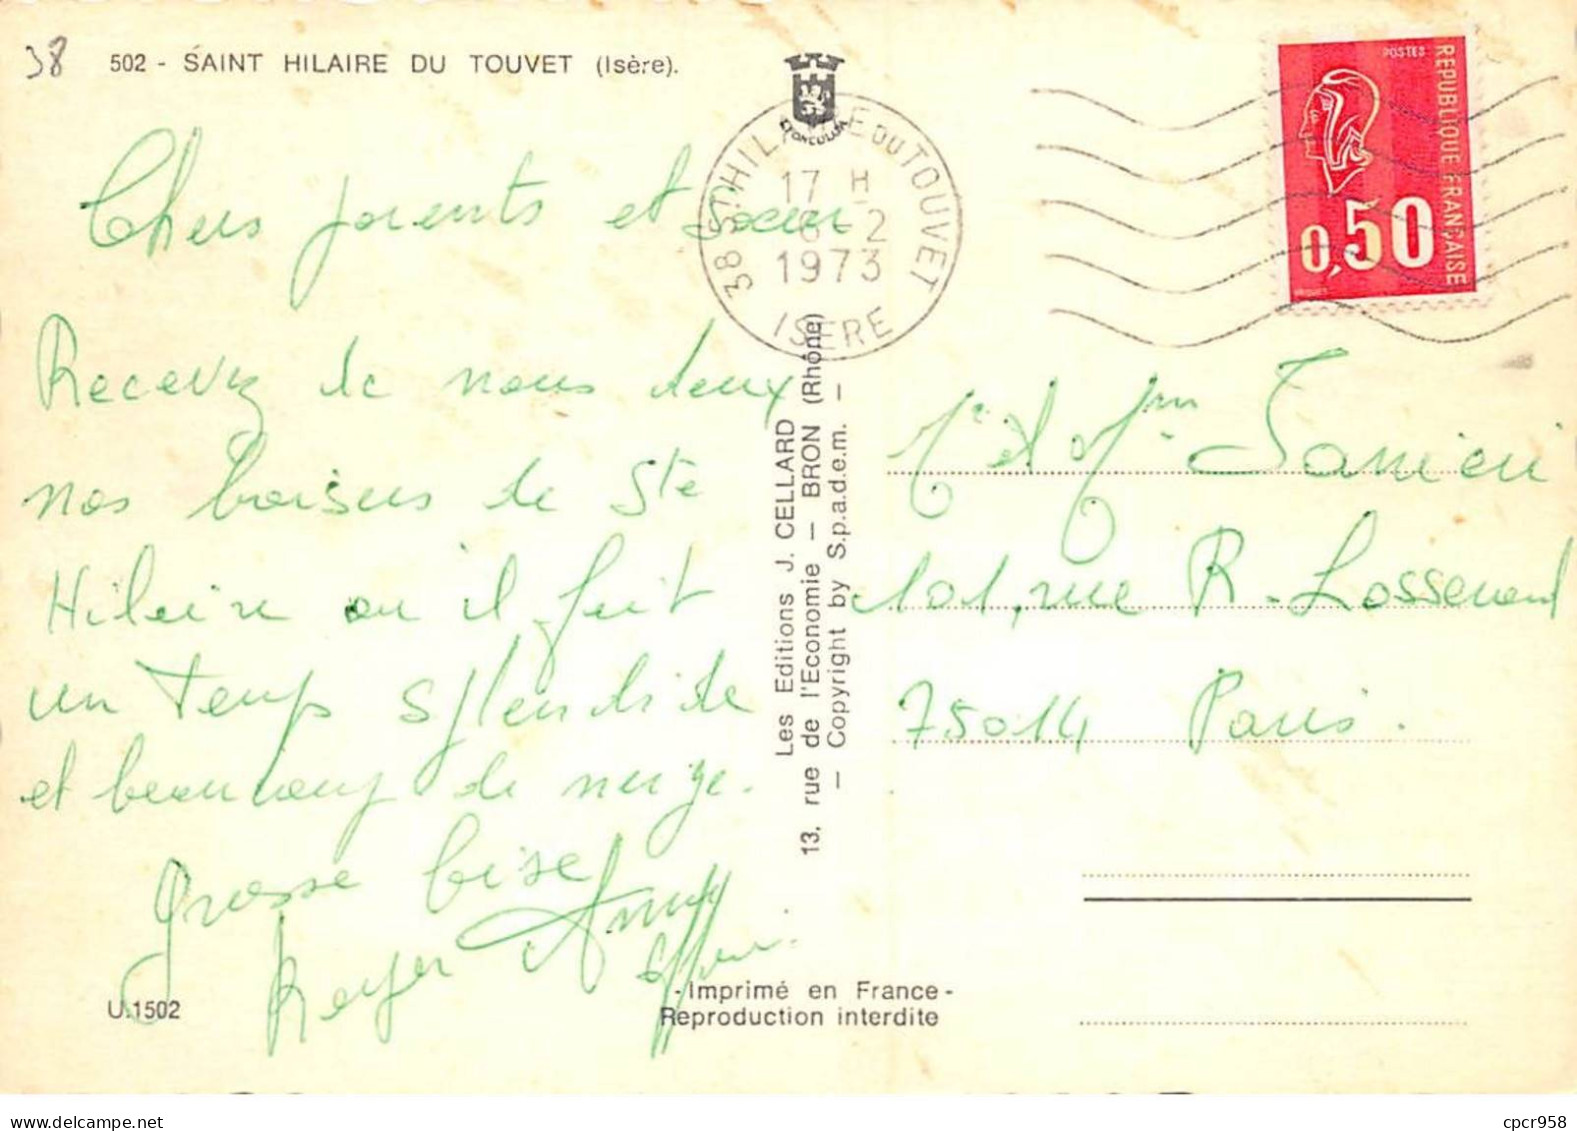 38
502 - SAINT HILAIRE DU TOUVET (Isère).
38 ST HILAIRE DU TOUVET
17 H
6-2
1973
ISERE
POSTES
REPUBLIQUE FRANÇAISE
0,50
Chers parents et soeur
Recevez de nous deux
nos baisers de Ste
Hilaire ou il fait
un temps splendide
et beaucoup de neige.
grosse bise
Roger
Les Editions J. CELLARD
13, rue de l'Economie — BRON (Rhône)
— Copyright by S.p.a.d.e.m. —
101, rue R. Losserand
75014 Paris.
U.1502
- Imprimé en France -
Reproduction interdite
cpcr958